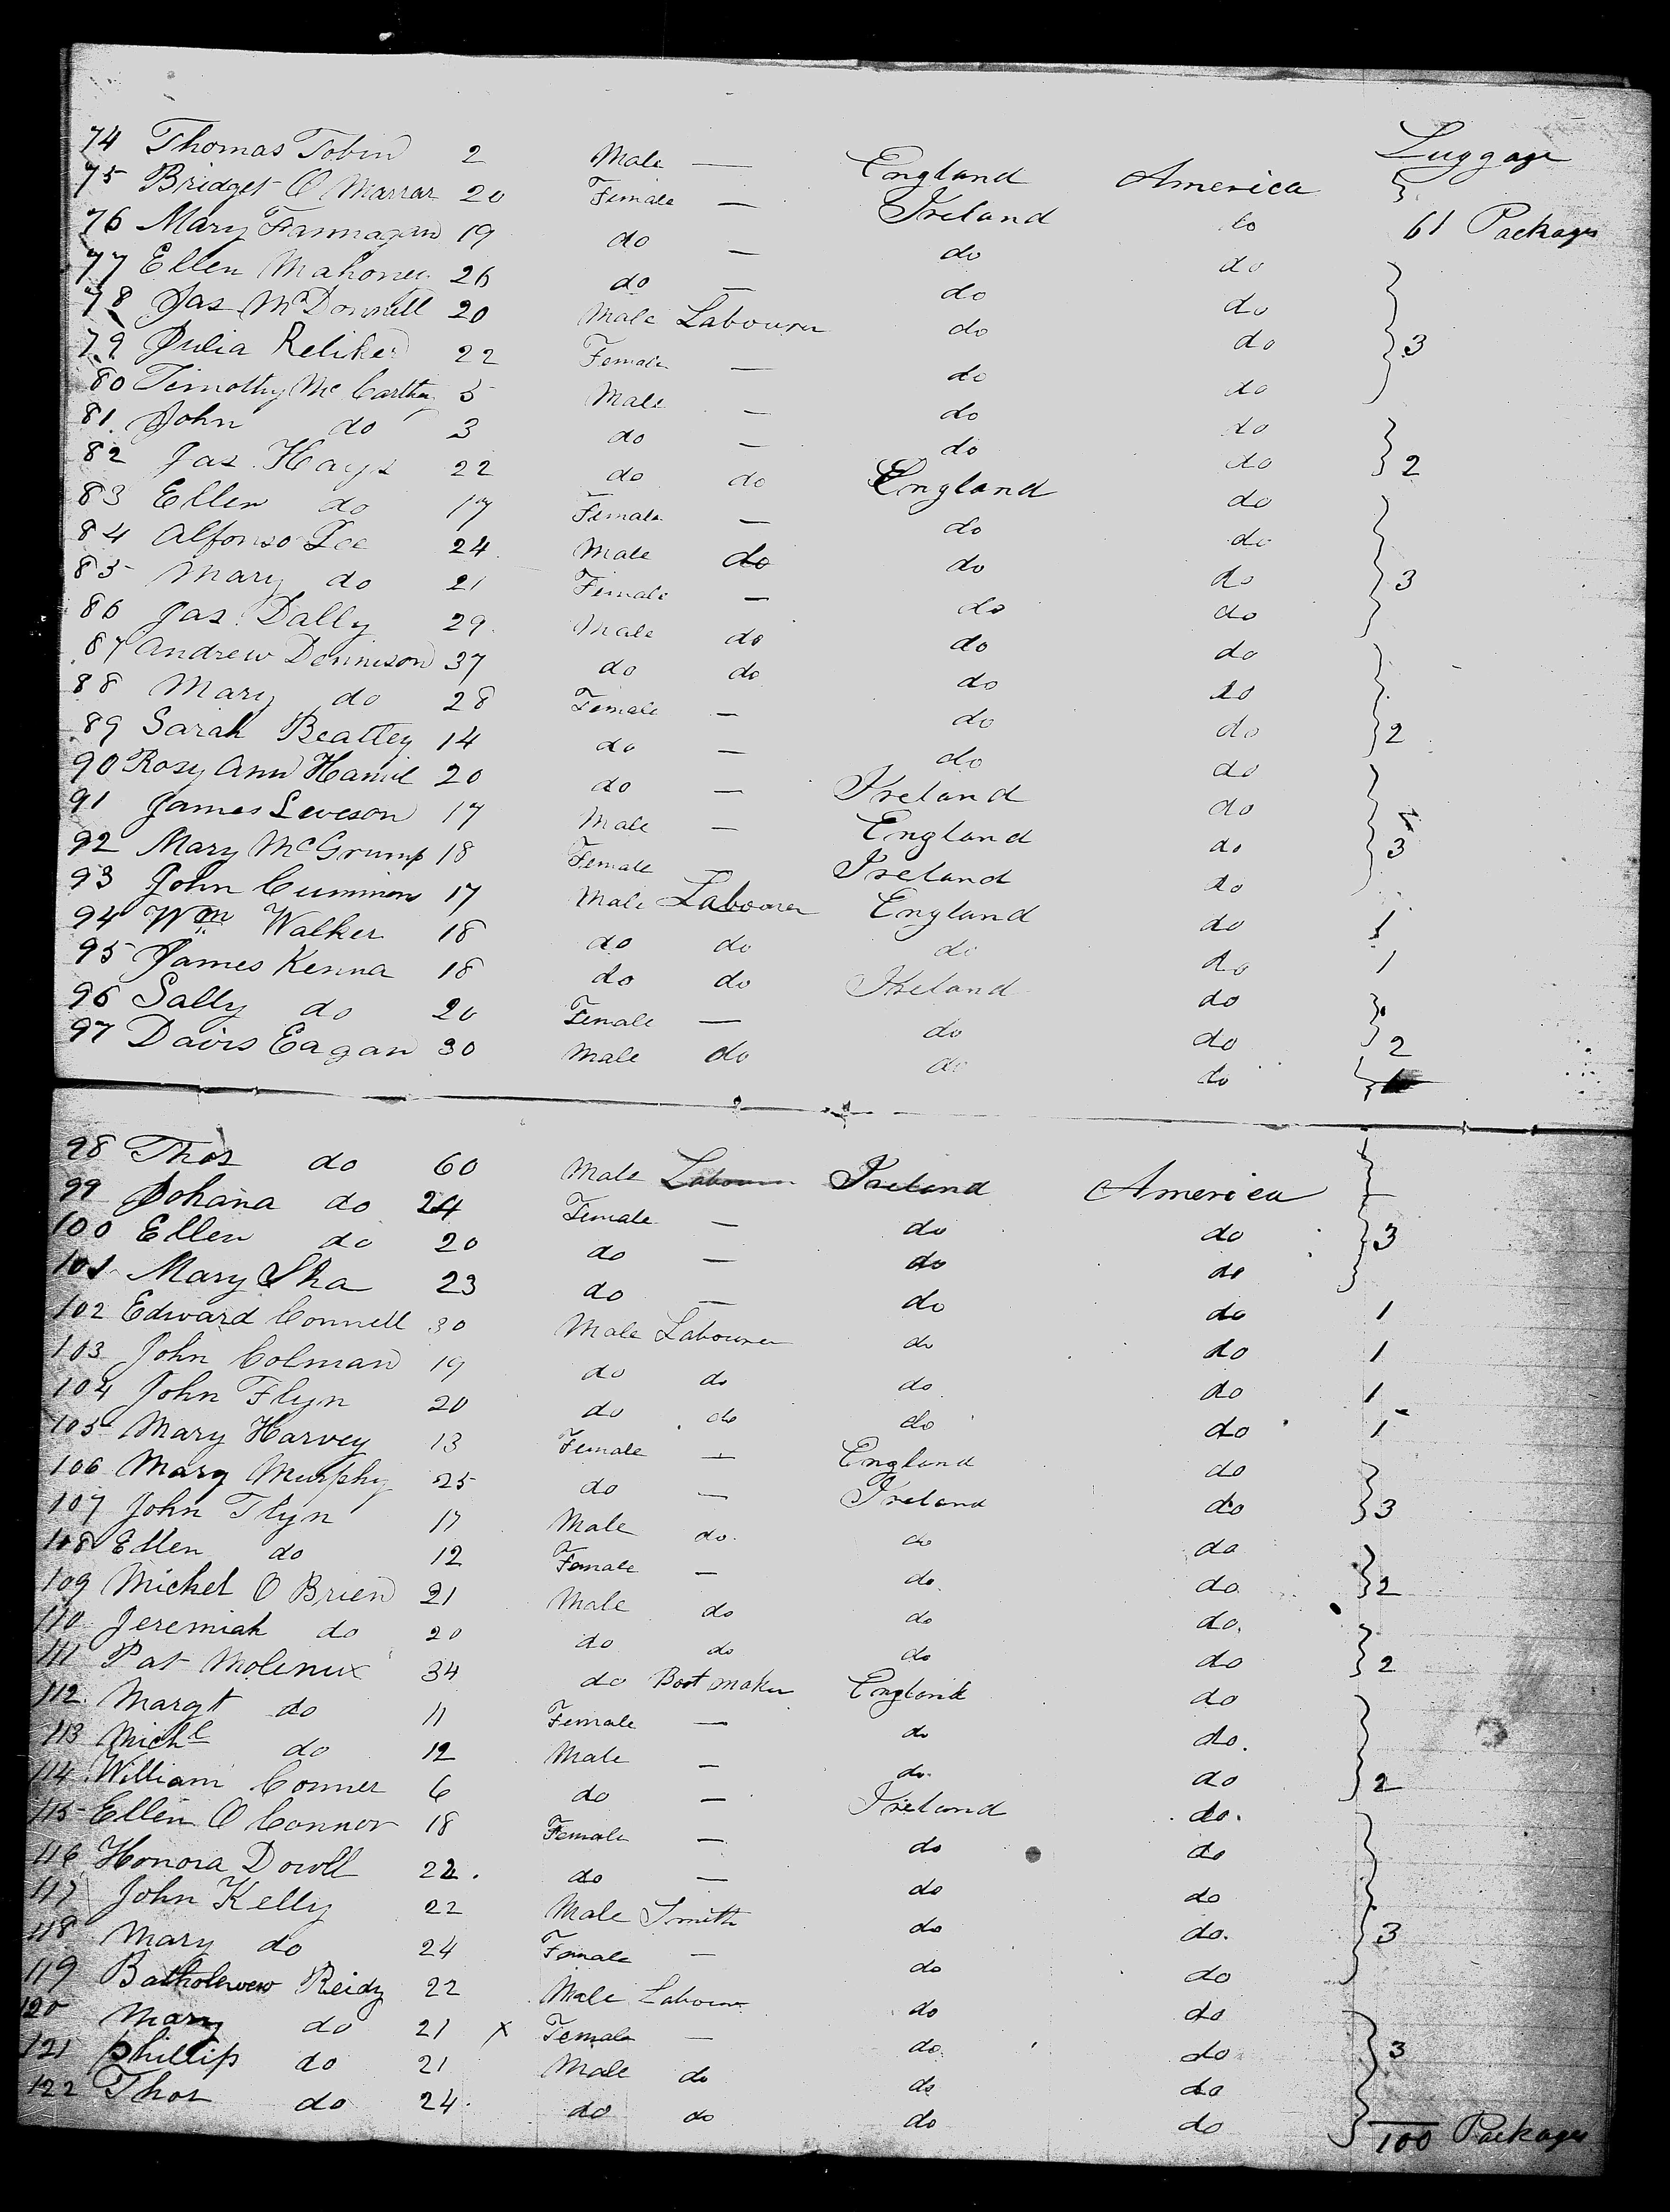 Luggage
74 Thomas Tobin 2 Male — England America
75 Bridget O Marrar 20 Female — Ireland do 61 Packages
76 Mary Fannagan 19 do — do do
77 Ellen Mahoney 26 do — do do
78 Jas McDonnell 20 Male Labourer do do 3
79 Julia Reliked 22 Female — do do
80 Timothy McCarthy 5 Male — do do
81 John do 3 do — do do 2
82 Jas Hays 22 do do England do
83 Ellen do 17 Female — do do
84 Alfonso Lee 24 Male do do do 3
85 Mary do 21 Female — do do
86 Jas Dally 29 Male do do do
87 Andrew Dennison 37 do do do do
88 Mary do 28 Female — do do 2
89 Sarah Beattey 14 do — do do
90 Rosy Ann Hamil 20 do — Ireland do
91 James Leveson 17 Male — England do 3
92 Mary McGrump 18 Female — Ireland do
93 John Cummins 17 Male Labourer England do 1
94 Wm Walker 18 do do do do 1
95 James Kenna 18 do do Ireland do
96 Sally do 20 Female — do do 2
97 Davis Eagan 30 Male do do do
98 Thos do 60 Male Labourer Ireland America
99 Johana do 24 Female — do do 3
100 Ellen do 20 do — do do
101 Mary Sha 23 do — do do 1
102 Edward Connell 30 Male Labourer do do 1
103 John Colman 19 do do do do 1
104 John Flyn 20 do do do do 1
105 Mary Harvey 13 Female — England do
106 Mary Murphy 25 do — Ireland do 3
107 John Flyn 17 Male do do do
108 Ellen do 12 Female — do do 2
109 Michel O Brien 21 Male do do do
110 Jeremiah do 20 do do do do 2
111 Pat Molenux 34 do Boot maker England do
112 Margt do 11 Female — do do
113 Michl do 12 Male — do do 2
114 William Conner 6 do — Ireland do
115 Ellen O Connor 18 Female — do do
116 Honora Dowll 22 do — do do
117 John Kelly 22 Male Smith do do 3
118 Mary do 24 Female — do do
119 Batholemew Reidy 22 Male Labourer do do
120 Mary do 21 x Female — do do 3
121 Phillip do 21 Male do do do
122 Thos do 24 do do do do
100 Packages